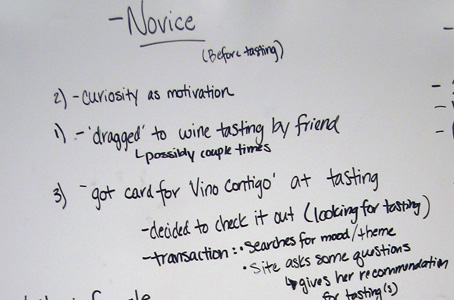 - Novice
(Before tasting)
2) - curiosity as motivation
1) - 'dragged' to wine tasting by friend
↳ possibly couple times
3) - got card for 'Vino Contigo' at tasting
- decided to check it out (looking for tasting)
- transaction: • Searches for mood/theme
• Site asks some questions
↳ gives her recommendation
for tasting(s)